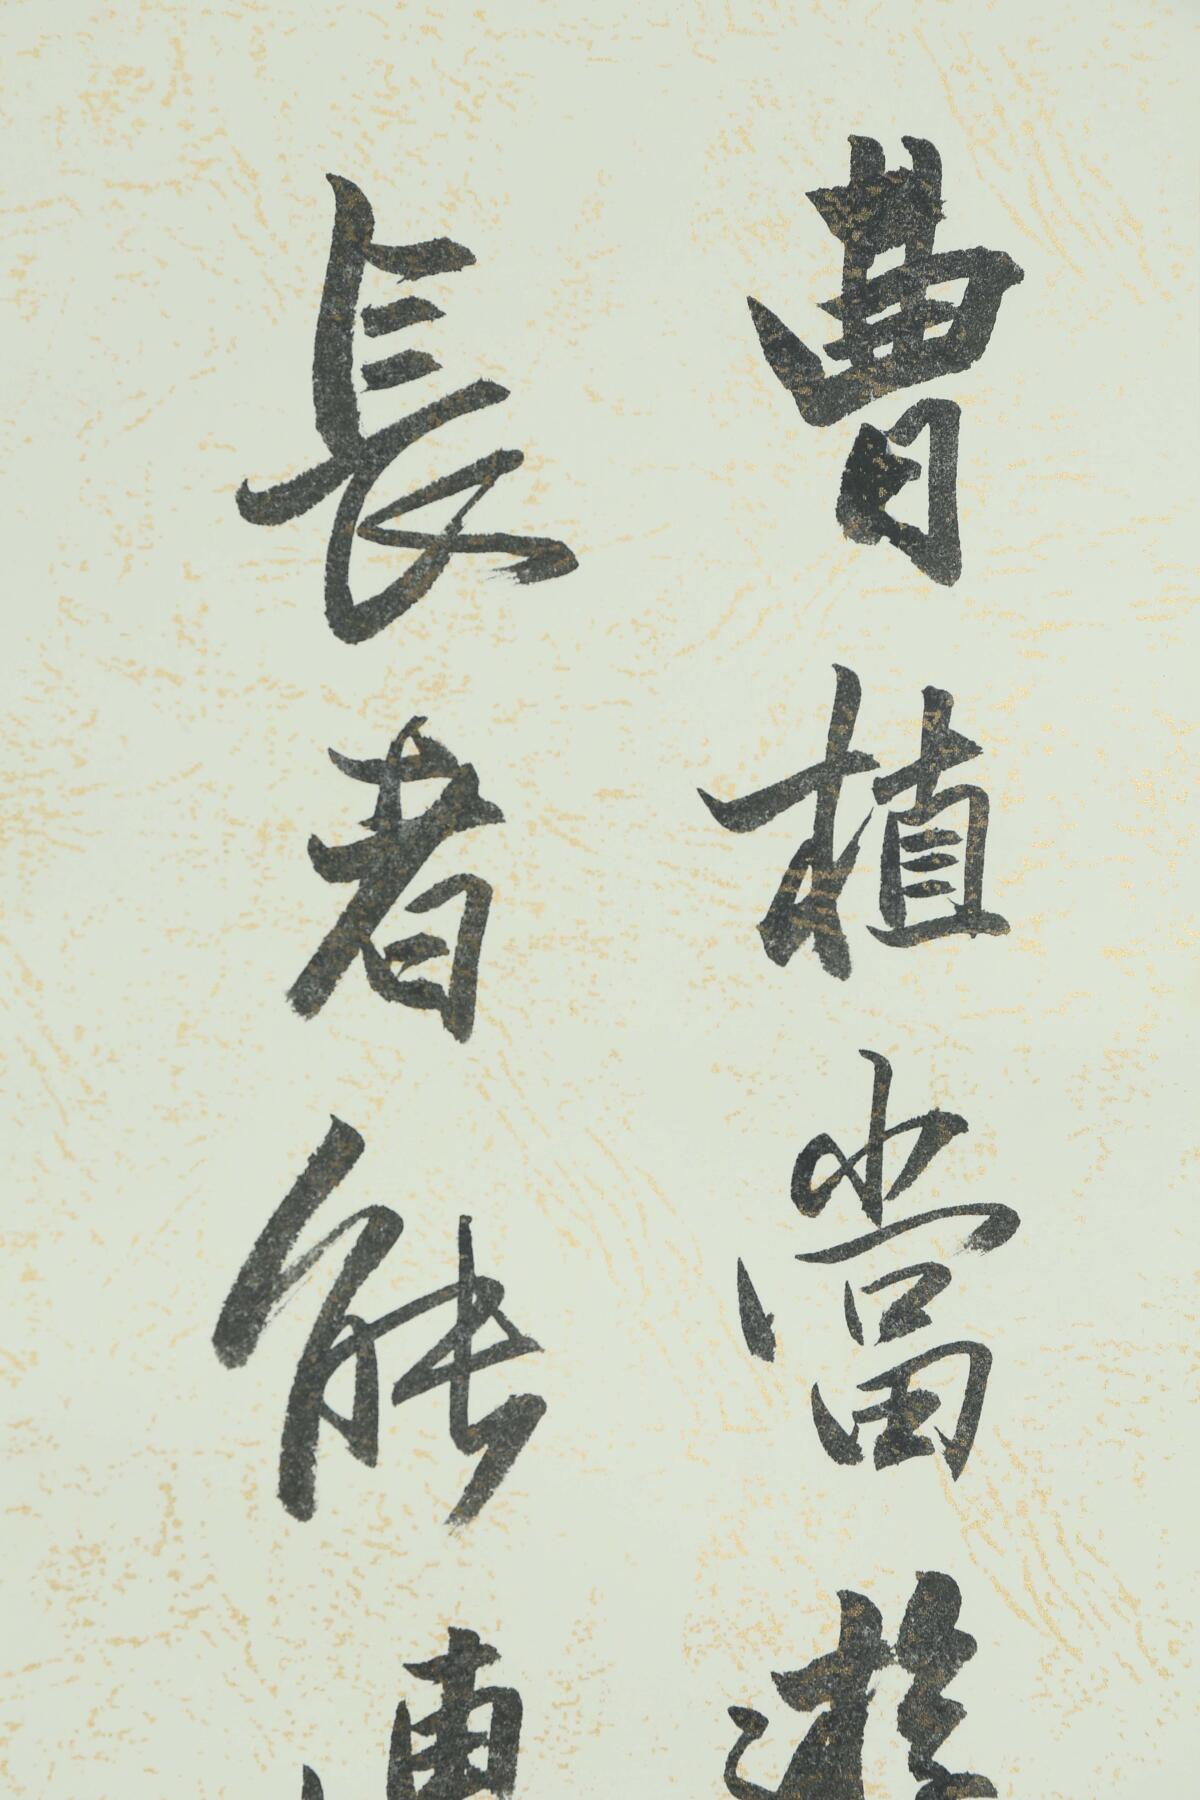 曹植當遊
長者能